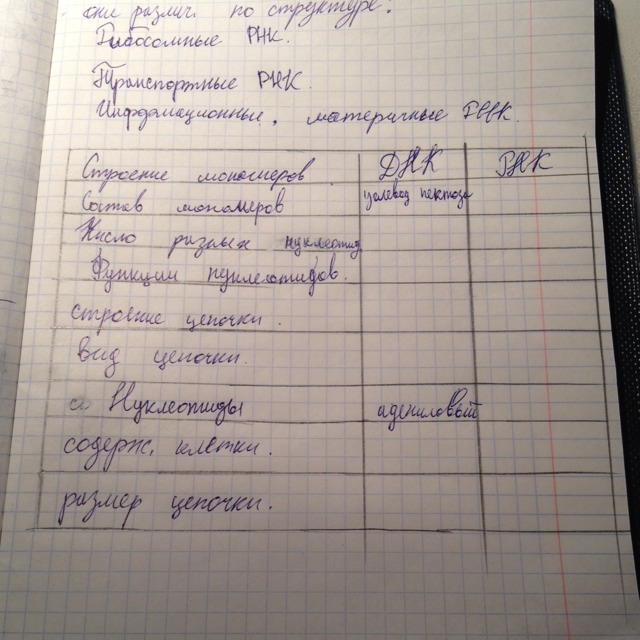 они различ. по структуре.
Рибосомные РНК.
Транспортные РНК.
Информационные, матричные РНК.
Строение мономеров ДНК РНК
Состав мономеров углевод пентоза
Число разных нуклеотид
Функции нуклеотидов.
строение цепочки.
вид цепочки.
Нуклеотиды адениловый
содерж. клетки.
размер цепочки.